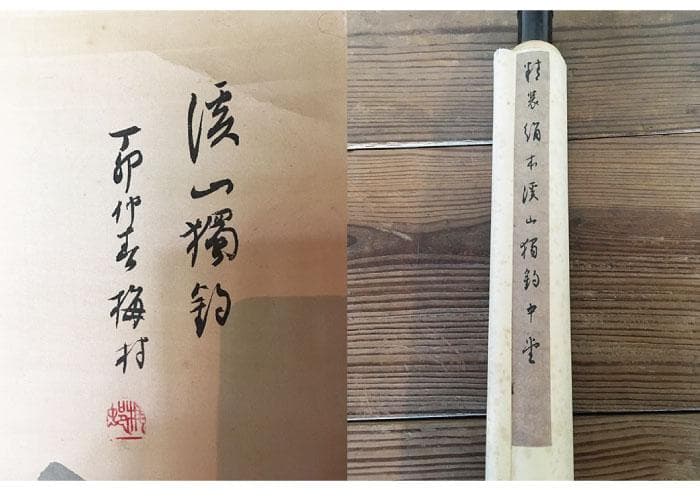 溪山獨釣
丁卯仲春梅村
精装绢本溪山独钓中堂